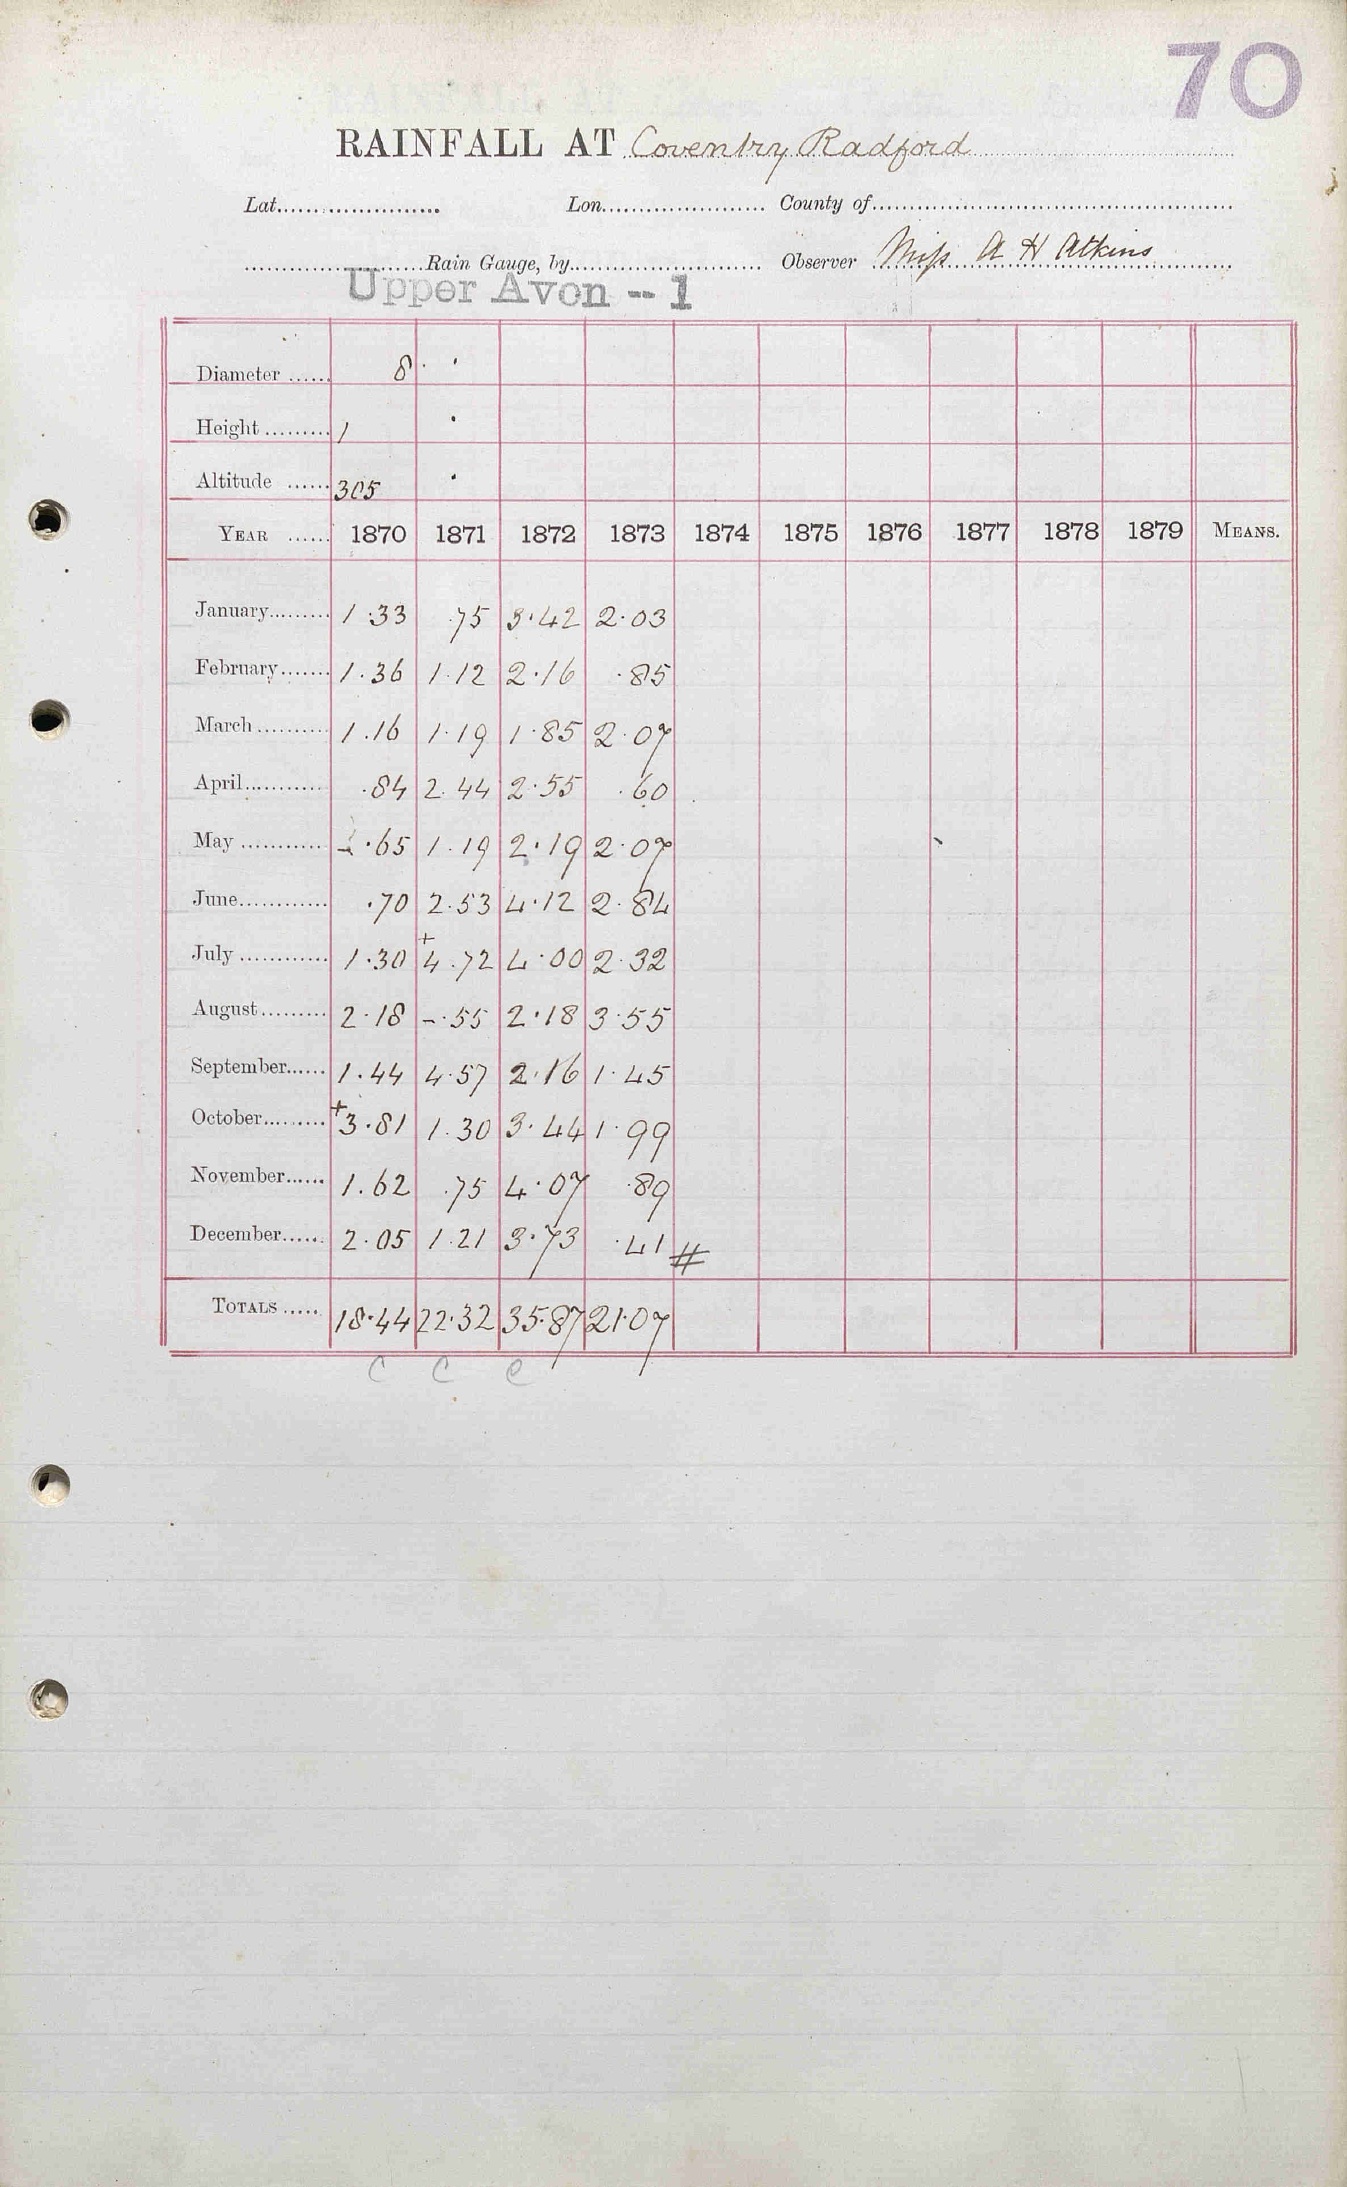 70
RAINFALL AT Coventry Radford
Lat. Lon. County of
Rain Gauge, by Observer Miss A H Atkins
Upper Avon -- 1
Diameter 8
Height 1
Altitude 305
YEAR 1870 1871 1872 1873 1874 1875 1876 1877 1878 1879 MEANS.
January 1.33 .75 3.42 2.03
February 1.36 1.12 2.16 .85
March 1.16 1.19 1.85 2.07
April .84 2.44 2.55 .60
May -.65 1.19 2.19 2.07
June .70 2.53 4.12 2.84
July 1.30 +4.72 4.00 2.32
August 2.18 -.55 2.18 3.55
September 1.44 4.57 2.16 1.45
October +3.81 1.30 3.44 1.99
November 1.62 .75 4.07 .89
December 2.05 1.21 3.73 .41 #
TOTALS 18.44 22.32 35.87 21.07
C C C